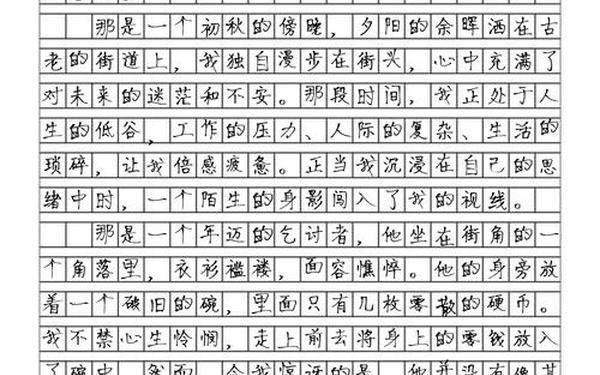 那是一个初秋的傍晚，夕阳的余晖洒在古
老的街道上，我独自漫步在街头，心中充满了
对未来的迷茫和不安。那段时间，我正处于人
生的低谷，工作的压力、人际的复杂、生活的
琐碎，让我倍感疲惫。正当我沉浸在自己的思
绪中时，一个陌生的身影闯入了我的视线。
那是一个年迈的乞讨者，他坐在街角的一
个角落里，衣衫褴褛，面容憔悴。他的身旁放
着一个破旧的碗，里面只有几枚零散的硬币。
我不禁心生怜悯，走上前去将身上的零钱放入
了碗中。然而，令我惊讶的是，他并没有像其